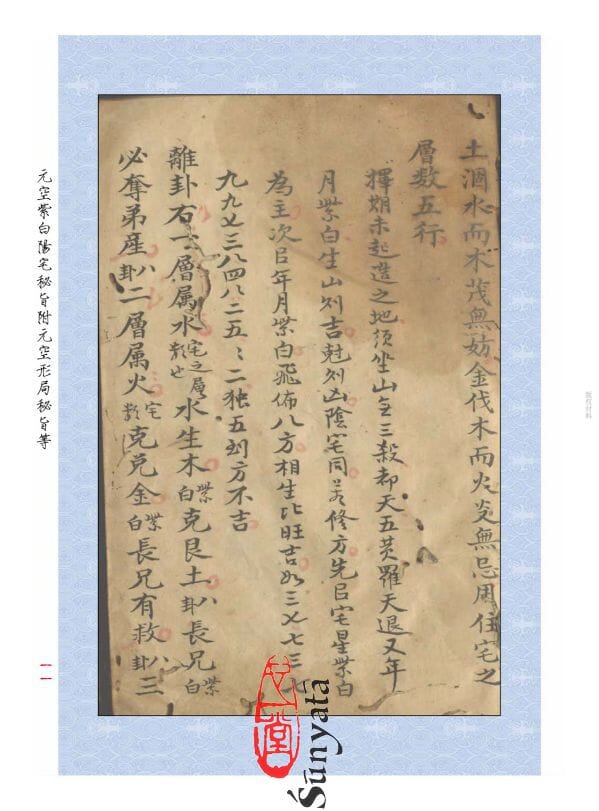 土涸水而木茂無妨金伐木而火炎無忌周住宅之
層数五行
擇期未起造之地須坐山三殺都天五黄羅天退又年
月紫白生山刘吉尅刘凶陰宅同若修方先㠯宅星紫白
為主次㠯年月紫白飛佈八方相生比旺吉如三乂七三七
九九乂三八四八二五、二独五刘方不吉
離卦右一層属水宅之層数也水生木紫白克艮土八卦長兄紫白
必奪弟産八卦二層属火宅数克兑金紫白長兄有救八卦三
元空紫白陽宅秘旨附元空形局秘旨等
一一
心一堂
Śūnyatā
版权材料